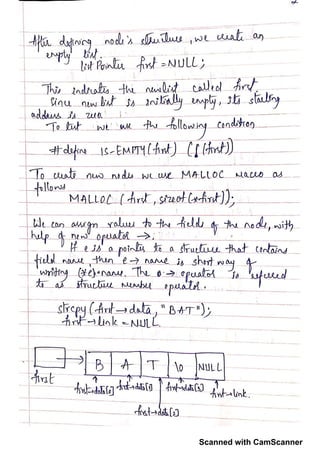 After defining node's structure, we create an
empty list.
list Pointer first = NULL;
This indicates the new list called first
Since new list is initially empty, its starting
address is zero
To test we use the following condition
#define IS-EMPTY(first) (!(first))
To create new nodes we use MALLOC Macro as
follows
MALLOC (first, sizeof(*first));
We can assign values to the fields of the node, with
help of new operator →.
If e is a pointer to a structure that contains
field name, then e→ name is short way of
writing (*e).name. The → operator is refered
to as structure member operator.
strcpy(first→data, "BAT");
first→link = NULL.
B A T \0 NULL
first first→data[0] first→data[1] first→data[3] first→link.
first→data[2]
Scanned with CamScanner